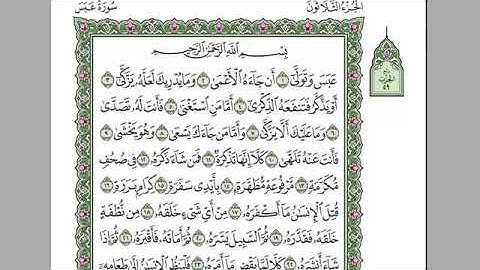 سُورَةُ عَبَسَ
الجُزْءُ الثَّلَاثُونَ
بِسْمِ اللَّهِ الرَّحْمَٰنِ الرَّحِيمِ
عَبَسَ وَتَوَلَّىٰ ١ أَن جَاءَهُ الْأَعْمَىٰ ٢ وَمَا يُدْرِيكَ لَعَلَّهُ يَزَّكَّىٰ ٣
أَوْ يَذَّكَّرُ فَتَنفَعَهُ الذِّكْرَىٰ ٤ أَمَّا مَنِ اسْتَغْنَىٰ ٥ فَأَنتَ لَهُ تَصَدَّىٰ
٦ وَمَا عَلَيْكَ أَلَّا يَزَّكَّىٰ ٧ وَأَمَّا مَن جَاءَكَ يَسْعَىٰ ٨ وَهُوَ يَخْشَىٰ ٩
فَأَنتَ عَنْهُ تَلَهَّىٰ ١٠ كَلَّا إِنَّهَا تَذْكِرَةٌ ١١ فَمَن شَاءَ ذَكَرَهُ ١٢ فِي صُحُفٍ
مُّكَرَّمَةٍ ١٣ مَّرْفُوعَةٍ مُّطَهَّرَةٍ ١٤ بِأَيْدِي سَفَرَةٍ ١٥ كِرَامٍ بَرَرَةٍ ١٦
قُتِلَ الْإِنسَانُ مَا أَكْفَرَهُ ١٧ مِنْ أَيِّ شَيْءٍ خَلَقَهُ ١٨ مِن نُّطْفَةٍ
خَلَقَهُ فَقَدَّرَهُ ١٩ ثُمَّ السَّبِيلَ يَسَّرَهُ ٢٠ ثُمَّ أَمَاتَهُ فَأَقْبَرَهُ ٢١ ثُمَّ إِذَا
شَاءَ أَنشَرَهُ ٢٢ كَلَّا لَمَّا يَقْضِ مَا أَمَرَهُ ٢٣ فَلْيَنظُرِ الْإِنسَانُ إِلَىٰ طَعَامِهِ